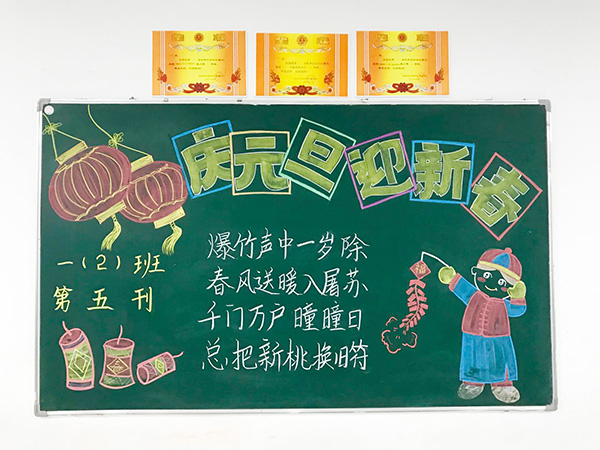 庆元旦迎新春
一(2)班
第五刊
爆竹声中一岁除
春风送暖入屠苏
千门万户瞳瞳日
总把新桃换旧符
福